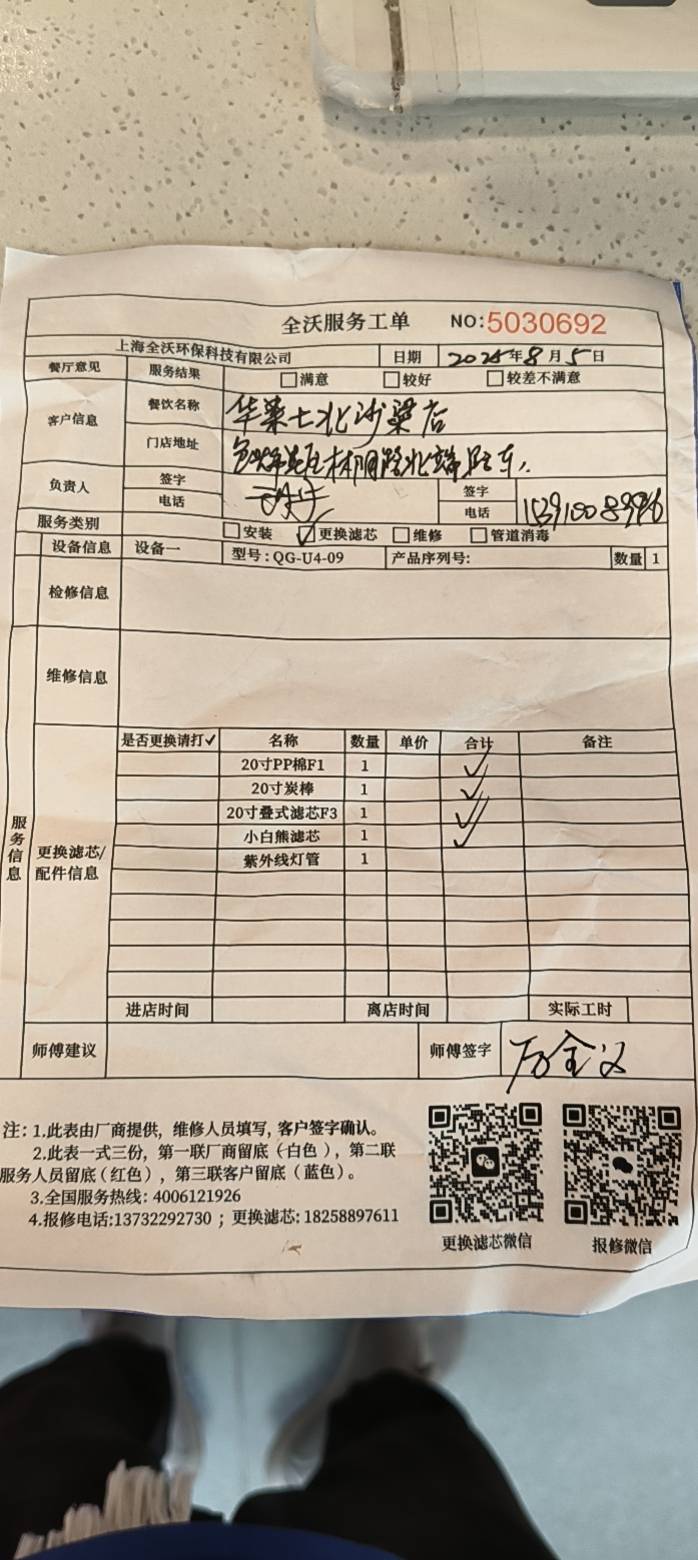 全沃服务工单 NO:5030692
上海全沃环保科技有限公司 日期 2025年8月5日
餐厅意见 服务结果 满意 较好 较差不满意
客户信息 餐饮名称 华莱士北沙梁店
门店地址
负责人 签字 签字
电话 电话
服务类别 安装 ✓更换滤芯 维修 管道消毒
设备信息 设备一 型号:QG-U4-09 产品序列号: 数量 1
检修信息
维修信息
服务信息
更换滤芯/配件信息
是否更换请打✓ 名称 数量 单价 合计 备注
20寸PP棉F1 1 ✓
20寸炭棒 1 ✓
20寸叠式滤芯F3 1 ✓
小白熊滤芯 1 ✓
紫外线灯管 1
进店时间 离店时间 实际工时
师傅建议 师傅签字
注:1.此表由厂商提供,维修人员填写,客户签字确认。
2.此表一式三份,第一联厂商留底(白色),第二联
服务人员留底(红色),第三联客户留底(蓝色)。
3.全国服务热线:4006121926
4.报修电话:13732292730 ; 更换滤芯:18258897611
更换滤芯微信 报修微信